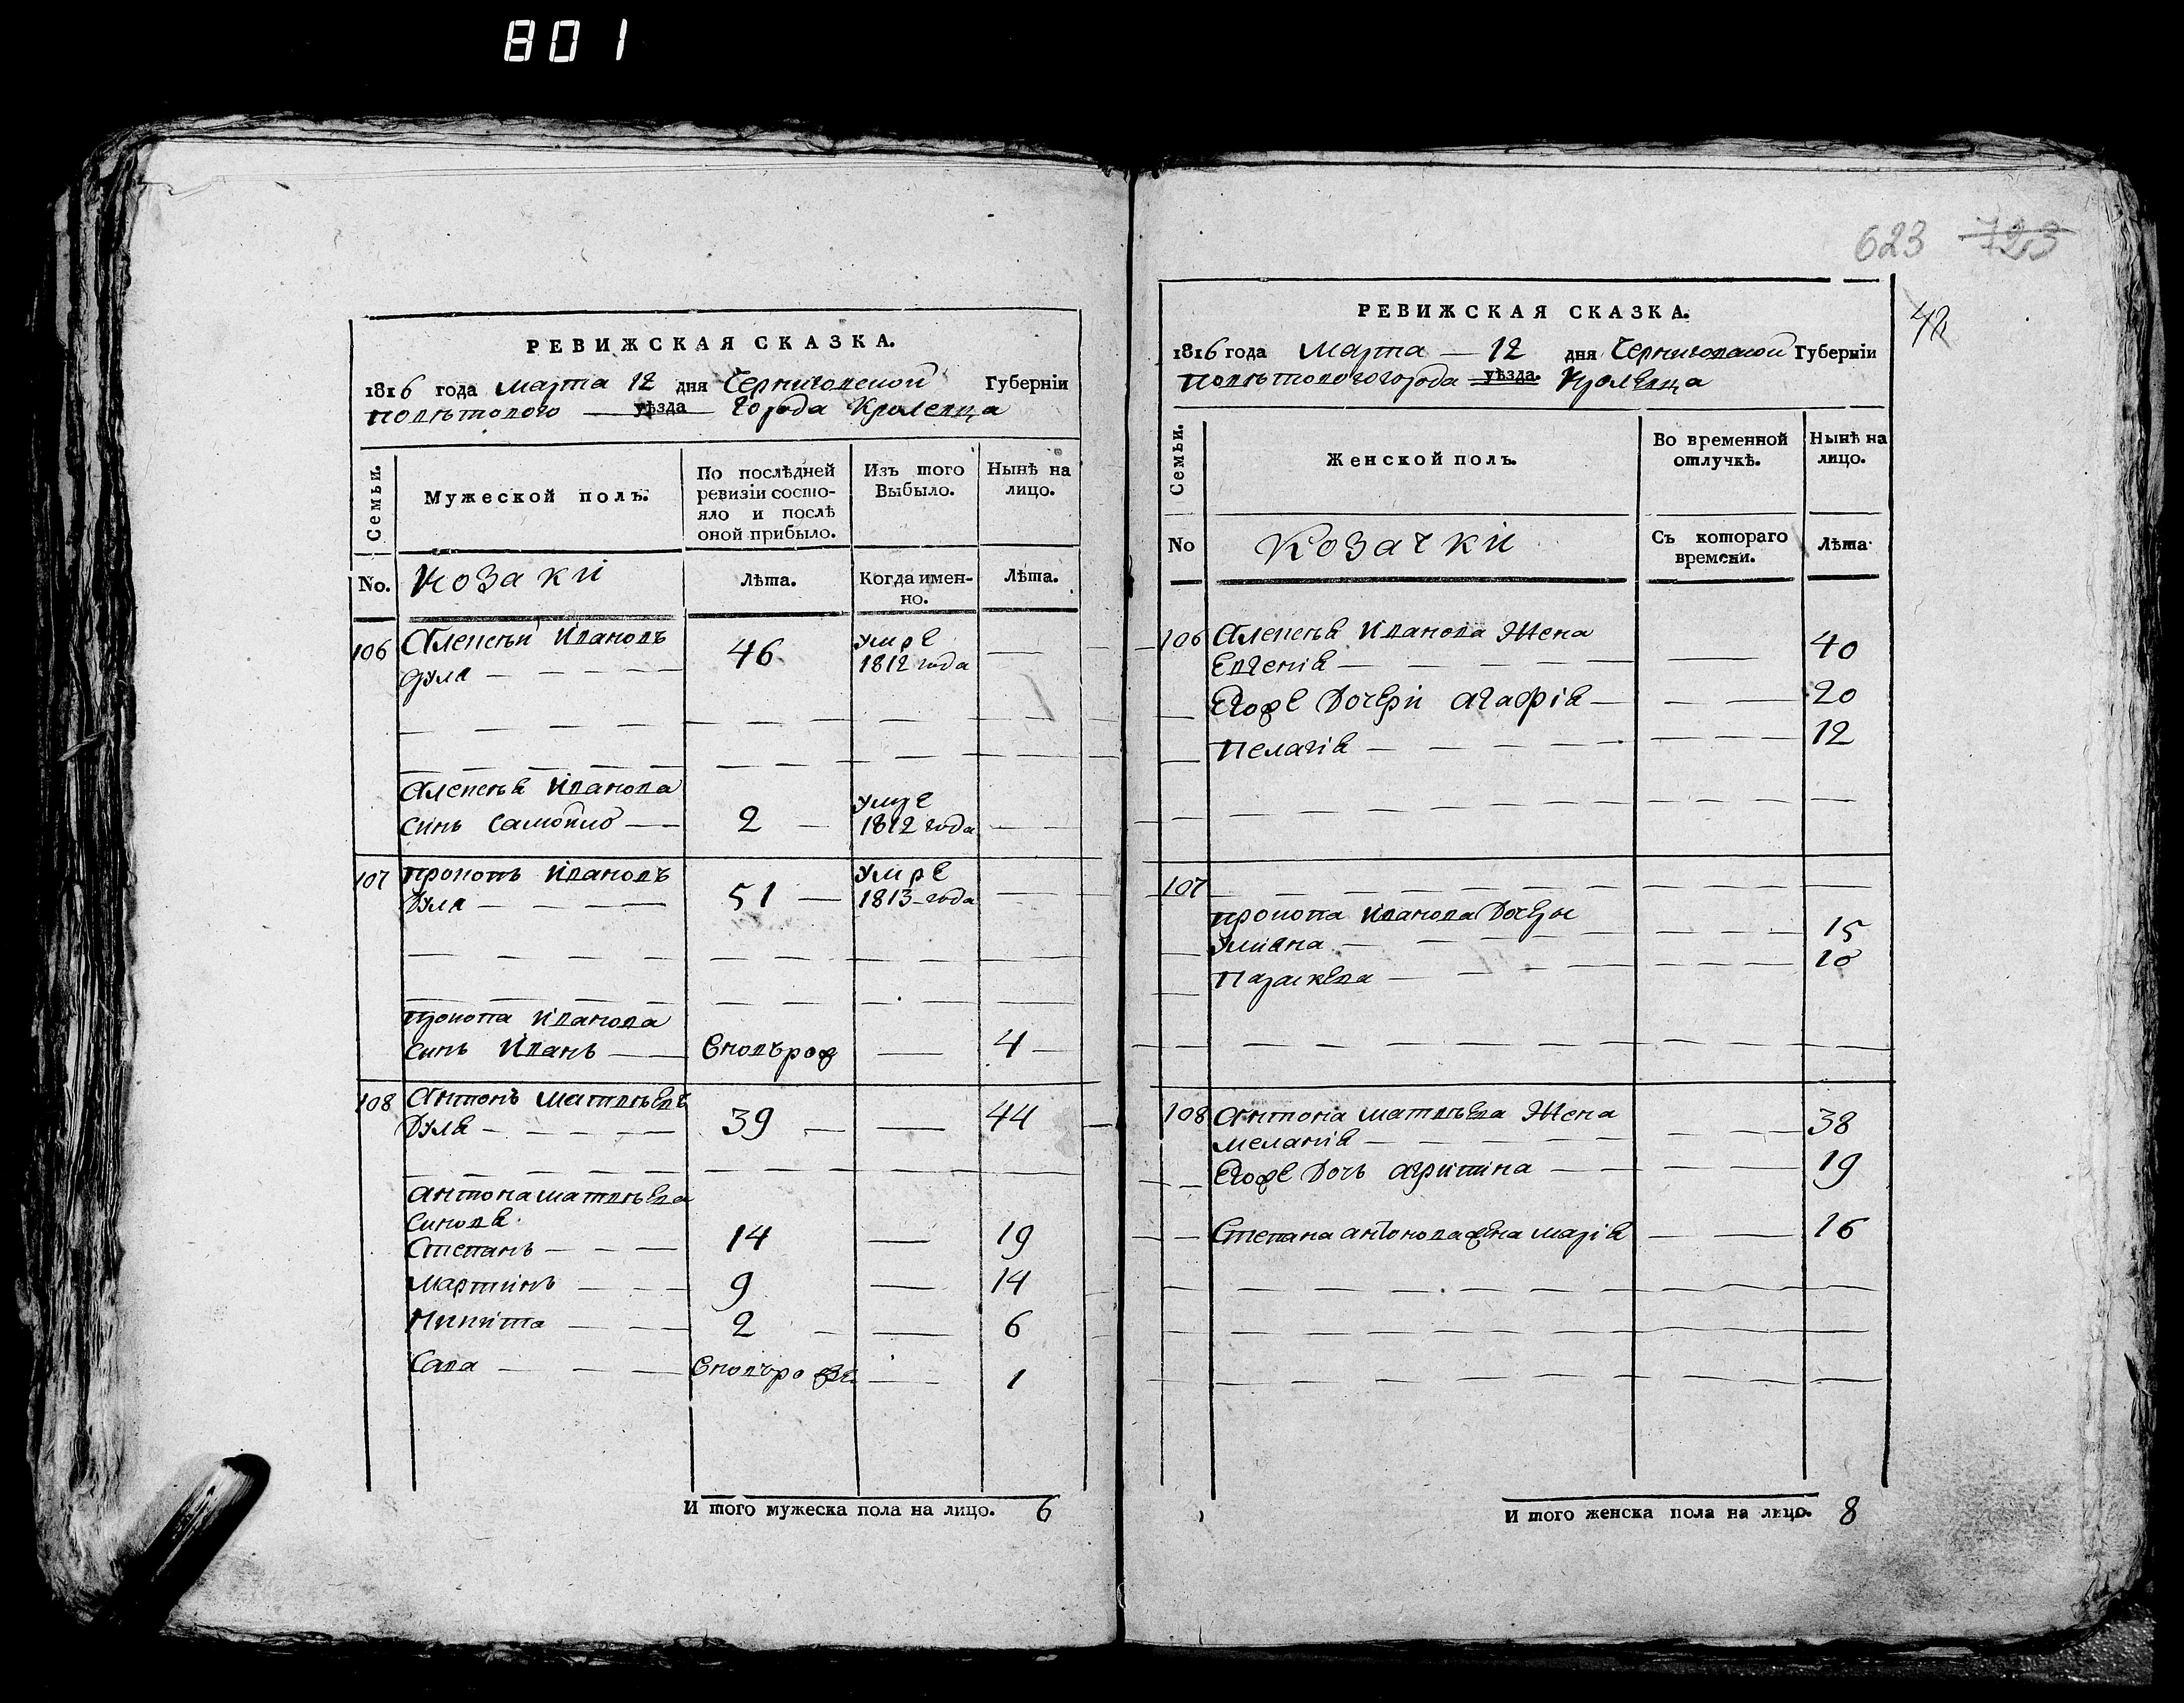 801
РЕВИЖСКАЯ СКАЗКА.
1816 года марта 12 дня Черниговской Губерніи
поветового уѣзда города Кролевца
Семьи.
Мужеской полъ.
По послѣдней ревизіи состо-
яло и послѣ
оной прибыло.
Изъ того
Выбыло.
Нынѣ на
лицо.
No.
Козаки
Лѣта.
Когда имен-
но.
Лѣта.
106 Алексѣй Ивановъ 46 умре
Дула 1812 года
Алексѣя Иванова умре
синъ Самойло 2 1812 года
107 Прокопъ Ивановъ 51 умре
Дула 1813 года
Прокопа Иванова
синъ Иванъ вновьрод 4
108 Антонъ Матвѣевъ 39 44
Дула
Антона Матвѣева
синовя
Степанъ 14 19
Мартинъ 9 14
Никита 2 6
Сава 1
И того мужеска пола на лицо. 6
623 723
42
РЕВИЖСКАЯ СКАЗКА.
1816 года марта 12 дня Черниговской Губерніи
поветового города уѣзда. Кролевца
Семьи.
Женской полъ.
Во временной
отлучкѣ.
Нынѣ на
лицо.
No
Козачки
Съ котораго
времени.
Лѣта
106 Алексѣя Иванова жена 40
Евгенія
Егоже дочери Агафія 20
Пелагія 12
107
Прокопа Иванова дочеры
Улияна 15
Параскева 10
108 Антона Матвѣева жена 38
Меланія
Егоже дочь Агрипина 19
Степана Антонова жена Марія 16
И того женска пола на лицо. 8